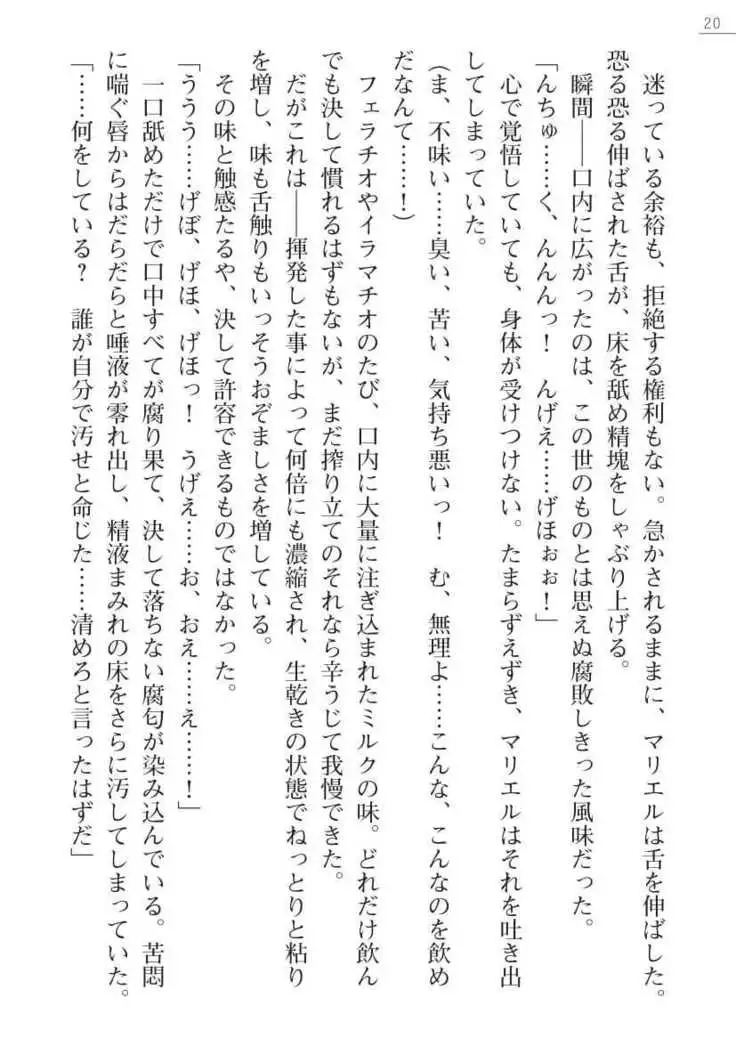 20
迷っている余裕も、拒絶する権利もない。急かされるままに、マリエルは舌を伸ばした。
恐る恐る伸ばされた舌が、床を舐め精塊をしゃぶり上げる。
瞬間――口内に広がったのは、この世のものとは思えぬ腐敗しきった風味だった。
「んちゅ……く、んんんっ！　んげえ……げほぉぉ！」
心で覚悟していても、身体が受けつけない。たまらずえずき、マリエルはそれを吐き出
してしまっていた。
（ま、不味い……臭い、苦い、気持ち悪いっ！　む、無理よ……こんな、こんなのを飲め
だなんて……！）
フェラチオやイラマチオのたび、口内に大量に注ぎ込まれたミルクの味。どれだけ飲ん
でも決して慣れるはずもないが、まだ搾り立てのそれなら辛うじて我慢できた。
だがこれは――揮発した事によって何倍にも濃縮され、生乾きの状態でねっとりと粘り
を増し、味も舌触りもいっそうおぞましさを増している。
その味と触感たるや、決して許容できるものではなかった。
「ううう……げぼ、げほ、げほっ！　うげえ……お、おえ……え……！」
一口舐めただけで口中すべてが腐り果て、決して落ちない腐匂が染み込んでいる。苦悶
に喘ぐ唇からはだらだらと唾液が零れ出し、精液まみれの床をさらに汚してしまっていた。
「……何をしている？　誰が自分で汚せと命じた……清めろと言ったはずだ」